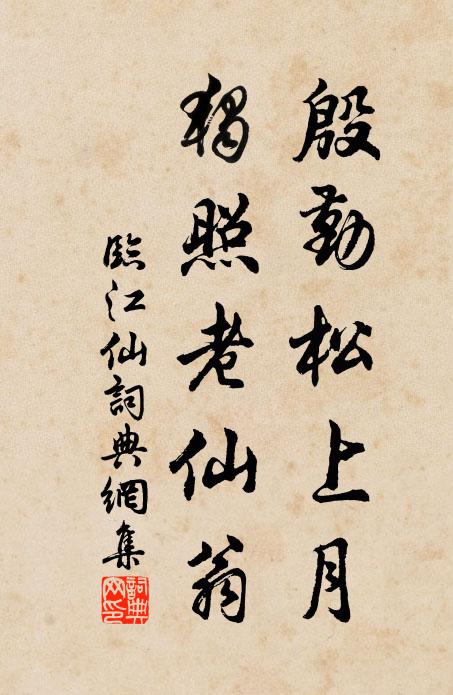 殷勤松上月
獨照老仙翁
臨江仙詞典網集
詞典網印